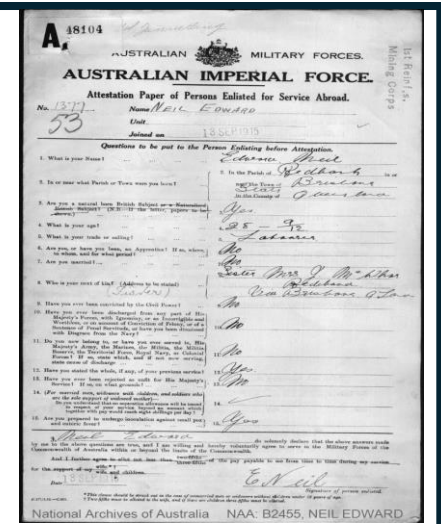 A. 48104
AUSTRALIAN MILITARY FORCES.
AUSTRALIAN IMPERIAL FORCE.
Attestation Paper of Persons Enlisted for Service Abroad.
No. 1377 Name NEIL EDWARD
53 Unit
Joined on 13 SEP 1915
1st Reinf's. Mining Corps
Questions to be put to the Person Enlisting before Attestation.
1. What is your Name? Edward Neil
2. In or near what Parish or Town were you born? In the Parish of Redbank in or
near the Town of Brisbane
in the County of
3. Are you a natural born British Subject or a Naturalized Yes
4. What is your age?
5. What is your trade or calling? 5. Labourer
6. Are you, or have you been, an Apprentice? If so, where, No
to whom, and for what period?
7. Are you married? No
8. Who is your next of kin? (Address to be stated) Sister Mrs
Via Brisbane
9. Have you ever been convicted by the Civil Power? No
10. Have you ever been discharged from any part of His
Majesty's Forces, with Ignominy, or as Incorrigible and
Worthless, or on account of Conviction of Felony, or of a
Sentence of Penal Servitude, or have you been dismissed
with Disgrace from the Navy? 10. No
11. Do you now belong to, or have you ever served in, His
Majesty's Army, the Marines, the Militia, the Militia
Reserve, the Territorial Force, Royal Navy, or Colonial
Forces? If so, state which, and if not now serving,
state cause of discharge 11. No
12. Have you stated the whole, if any, of your previous service? 12. Yes
13. Have you ever been rejected as unfit for His Majesty's
Service? If so, on what grounds? 13. No
14. (For married men, widowers with children, and soldiers who
are the sole support of widowed mother)
Do you understand that no separation allowance will be issued
in respect of your service beyond an amount which
together with pay would reach eight shillings per day? 14.
15. Are you prepared to undergo inoculation against small pox
and enteric fever? 15. Yes
I, Neil Edward do solemnly declare that the above answers made
by me to the above questions are true, and I am willing and hereby voluntarily agree to serve in the Military Forces of the
Commonwealth of Australia within or beyond the limits of the Commonwealth.
And I further agree to allot not less than of the pay payable to me from time to time during my service
for the support of my wife
wife and children.
Date 13 SEP 1915 E Neil
Signature of person enlisted.
National Archives of Australia NAA: B2455, NEIL EDWARD